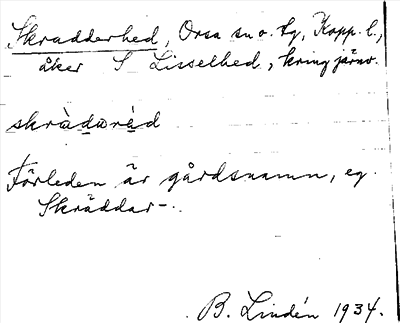 Skradderhed, Orsa sn o. tg, Kopp. l.,
åker S Lisselhed, kring järnv.
skràdaréd
Förleden är gårdsnamn, eg.
Skräddar-.
B. Lindén 1934.